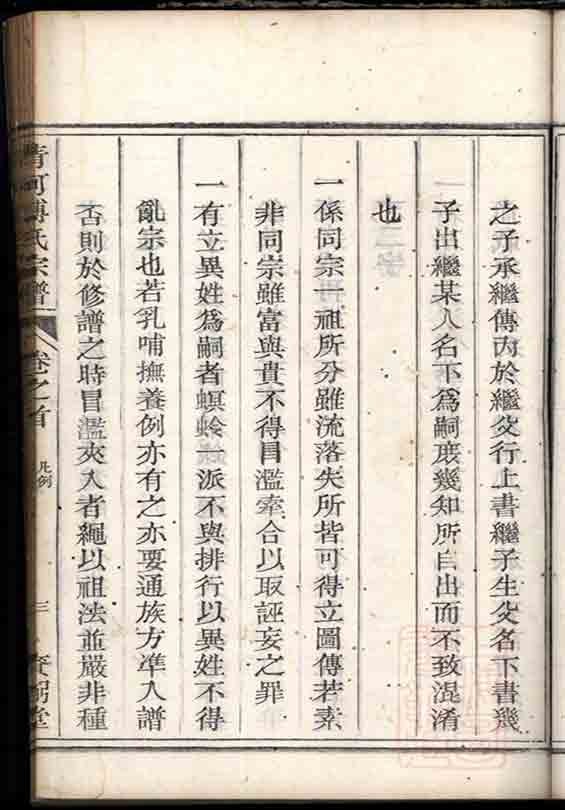 之子承繼傳內於繼父行上書繼子生父名下書幾
子出繼某人名下為嗣庻幾知所自出而不致混淆
也
一係同宗一祖所分雖流落失所皆可得立圖傳若素
非同宗雖富與貴不得冒濫牽合以取誣妄之罪
一有立異姓為嗣者螟蛉一派不與排行以異姓不得
亂宗也若乳哺撫養例亦有之亦要通族方準入譜
否則於修譜之時冒濫夾入者繩以祖法並嚴非種
清河傅氏宗譜 卷之首 凡例 三 堂